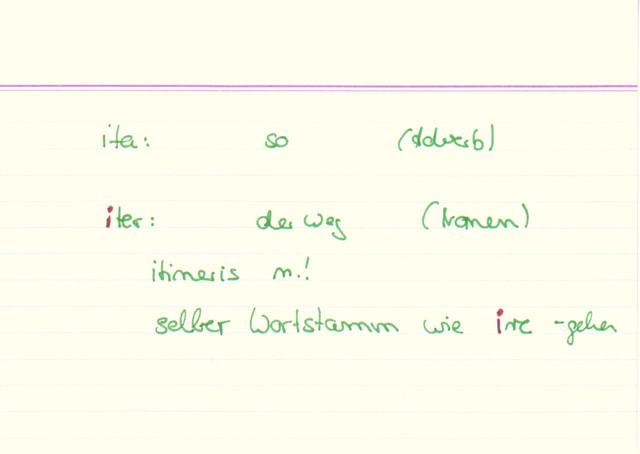 ita: so (Adverb)
iter: der Weg (Nomen)
itineris n.!
selber Wortstamm wie ire - gehen